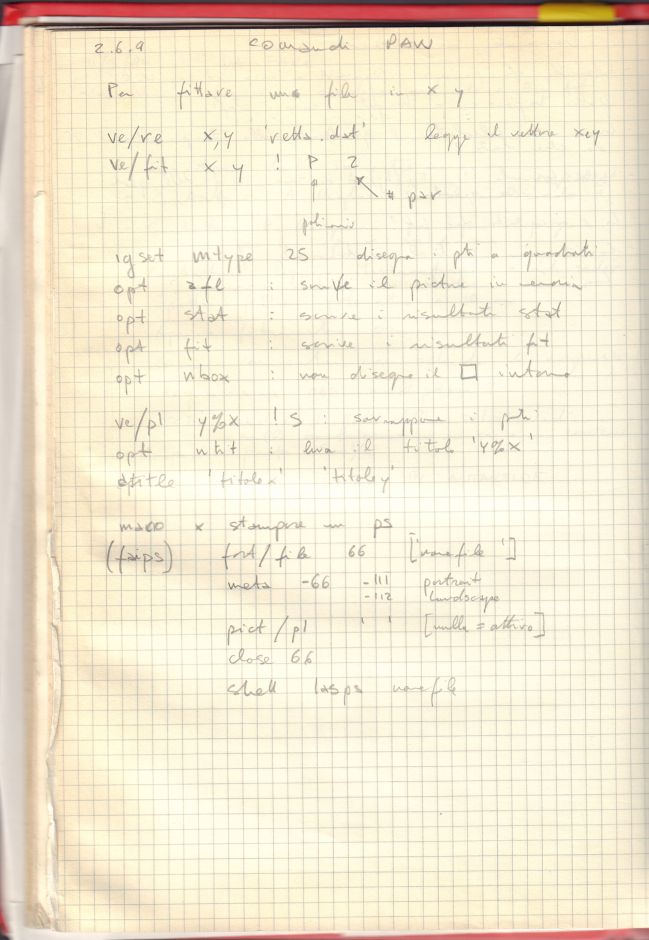 2.6.9 comandi PAW
Per fittare un file in x y
ve/re x,y 'retta.dat' legge il vettore x e y
ve/fit x y ! P 2
# par
polinomio
igset mtype 25 disegna i pti a quadrati
opt zfl : scrive il picture in memoria
opt stat : scrive i risultati stat
opt fit : scrive i risultati fit
opt nbox : non disegna il □ intorno
ve/pl y%x ! S : sovrappone i pti
opt ntit : leva il titolo 'y%x'
atitle 'titolex' 'titoley'
macro x stampare un ps
(faips) fort/file 66 ['nomefile']
meta -66 -111 portrait
-112 landscape
pict/pl ' ' [nulla = attivo]
close 66
shell lasps nomefile